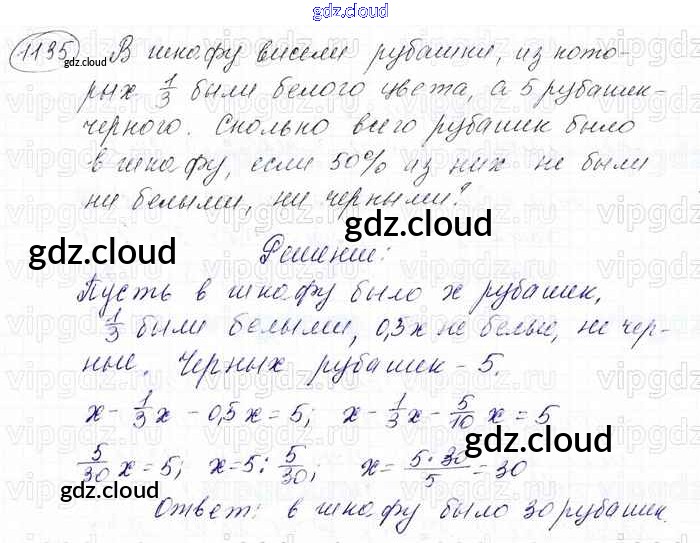 gdz.cloud
1135 В шкафу висели рубашки, из кото-
gdz.cloud
рых 1/3 были белого цвета, а 5 рубашек-
черного. Сколько всего рубашек было
в шкафу, если 50% из них не были
ни белыми, ни черными?
gdz.cloud
gdz.cloud
Решение:
Пусть в шкафу было x рубашек,
1/3 были белыми, 0,5x не белые, не чер-
ные. Черных рубашек - 5.
x - 1/3 x - 0,5x = 5; x - 1/3 x - 5/10 x = 5
gdz.cloud
5/30 x = 5; x = 5 : 5/30; x = 5·30/5 = 30
gdz.cloud
Ответ: в шкафу было 30 рубашек.